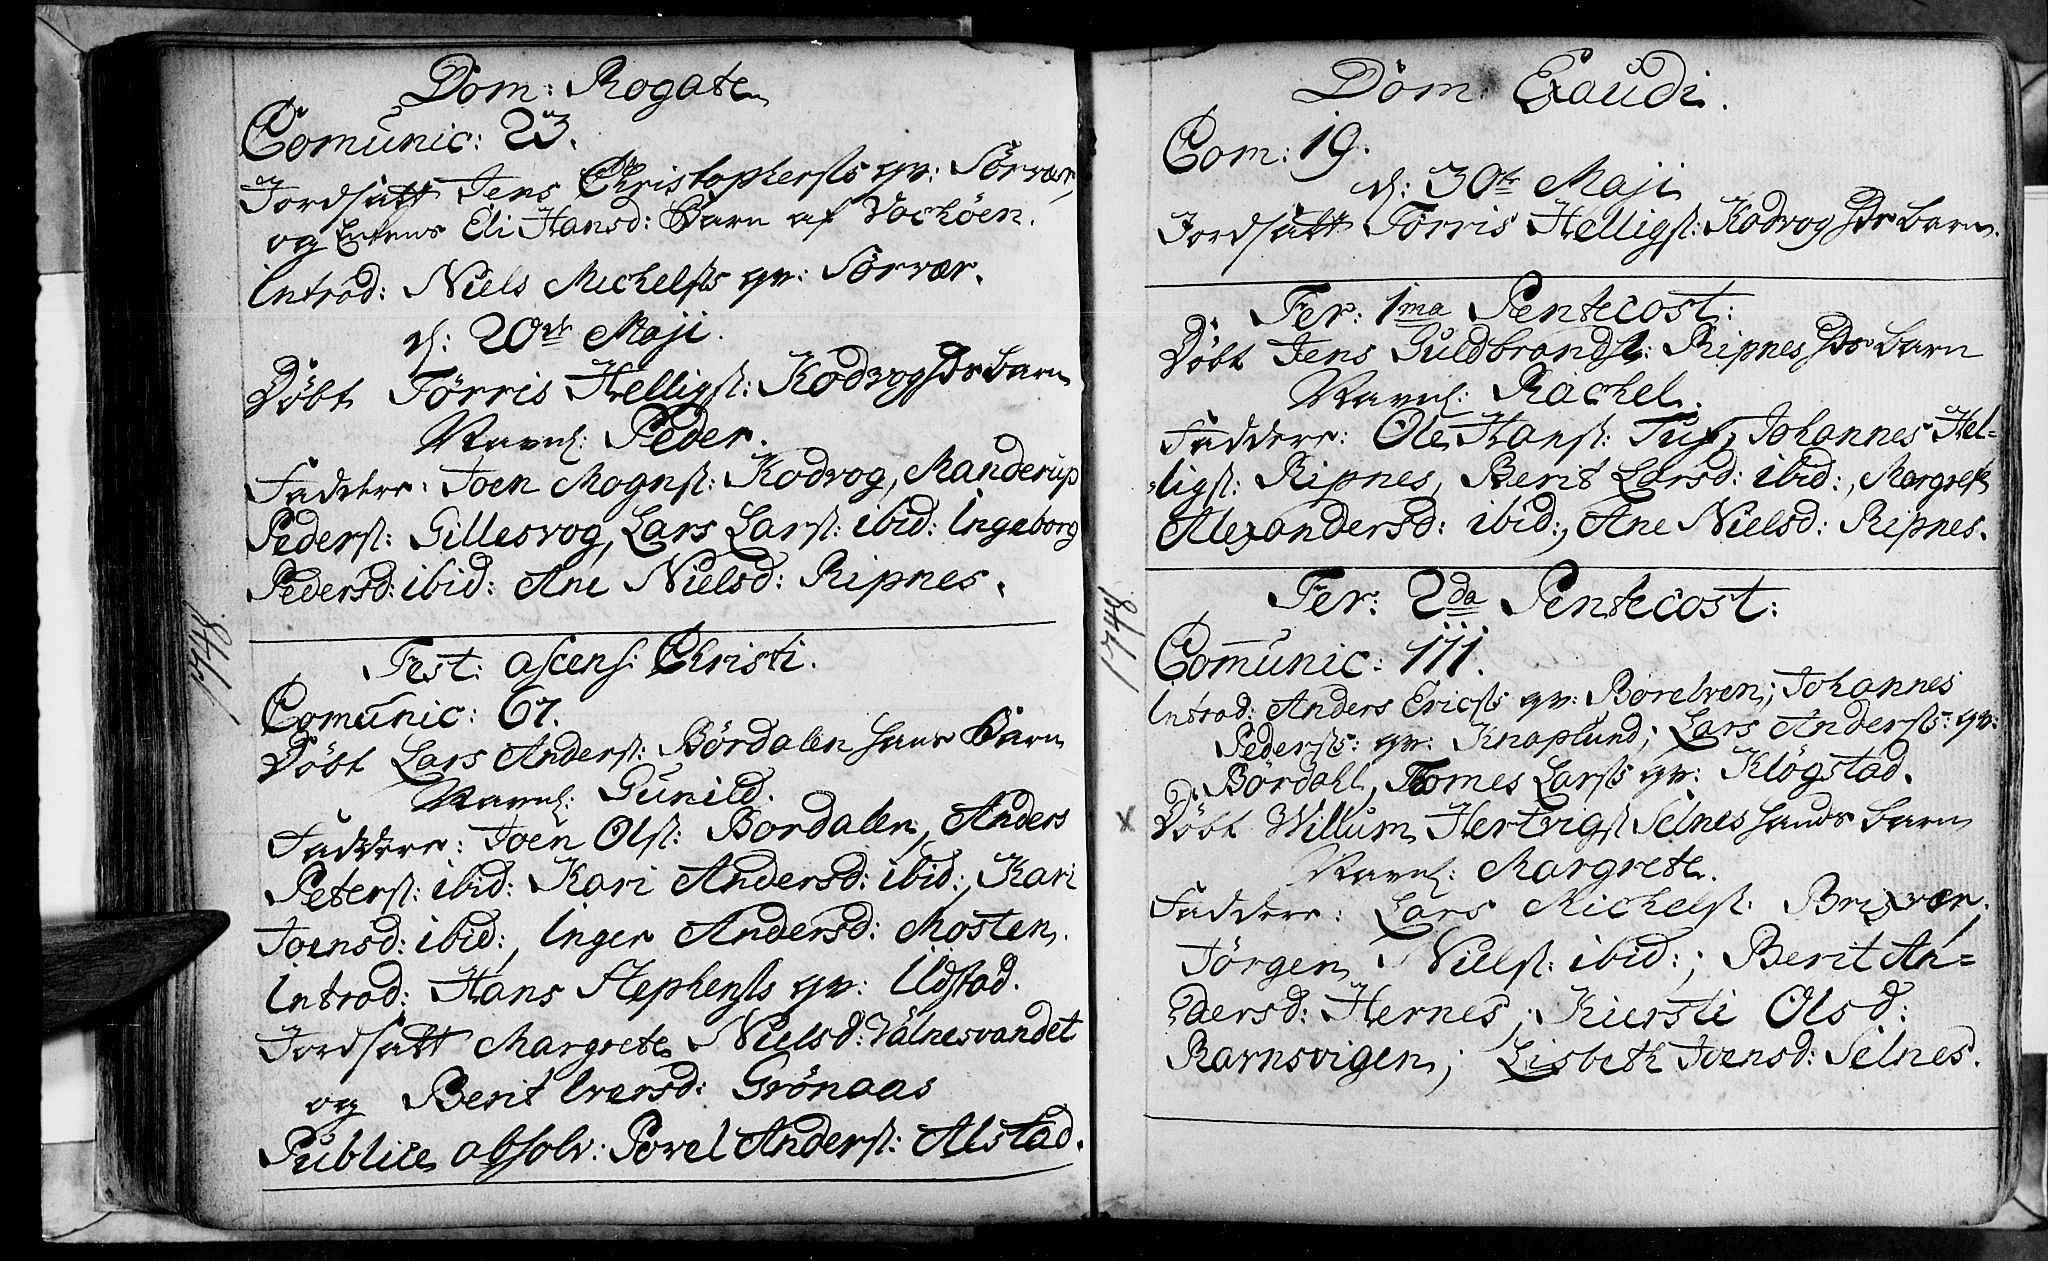 Dom: Rogate
Comunic: 23.
Jordsatt Jens Christophersts qv: Sörvær,
og Eli Hansd: Barn af Vochöen.
Introd: Niels Michelsts qv: Sörvær.
d: 20de Maji.
Döbt Törris Helligst: Kodvog Ds barn
Navnl: Peder.
Faddere: Joen Mognst: Kodvog, Manderup
Pederst: Gillesvog, Lars Larst: ibid: Ingeborg
Pedersd: ibid: Ane Nielsd: Ripnes.
1748.
Fest: ascens: Christi.
Comunic: 67.
Döbt Lars Anderst: Bördalen hans Barn
Navnl: Gunild.
Faddere: Joen Olst: Bordalen, Anders
Peterst: ibid: Kari Andersd: ibid:, Kari
Joensd: ibid:, Inger Andersd: Mosten.
Introd: Hans Stephensts qv: Ildstad.
Jordsatt Margrete Nielsd: Valnesvandet
og Berit Iversd: Grönaas
Publice absolv: Povel Anderst: Alstad.
Dom: Exaudi.
Com: 19.
d: 30te Maji
Jordsatt Torris Helligst: Kodvog Ds barn.
Fer: 1ma Pentecost:
Döbt Jens Guldbrandst: Ripnes Ds barn
Navnl: Rachel.
Faddere: Ole Hanst: Tuf, Johannes Hel=
ligst: Ripnes, Berit Larsd: ibid:, Margrete
Alexandersd: ibid:, Ane Nielsd: Ripnes.
1748.
Fer: 2da Pentecost:
Comunic: 111.
Introd: Anders Ericsts qv: Börelven; Johannes
Pedersts: qv: Knaplund; Lars Andersts: qv:
Bördahl, Tomes Larsts qv: Klögstad.
x Döbt Willum Hertvigst Selnes hands barn
Navnl: Margrete.
Faddere: Lars Michelst: Brixvær,
Jörgen Nielst: ibid:; Berit An=
dersd: Hernes; Kiersti Olsd:
Ramsvigen; Lisbeth Joensd: Selnes.